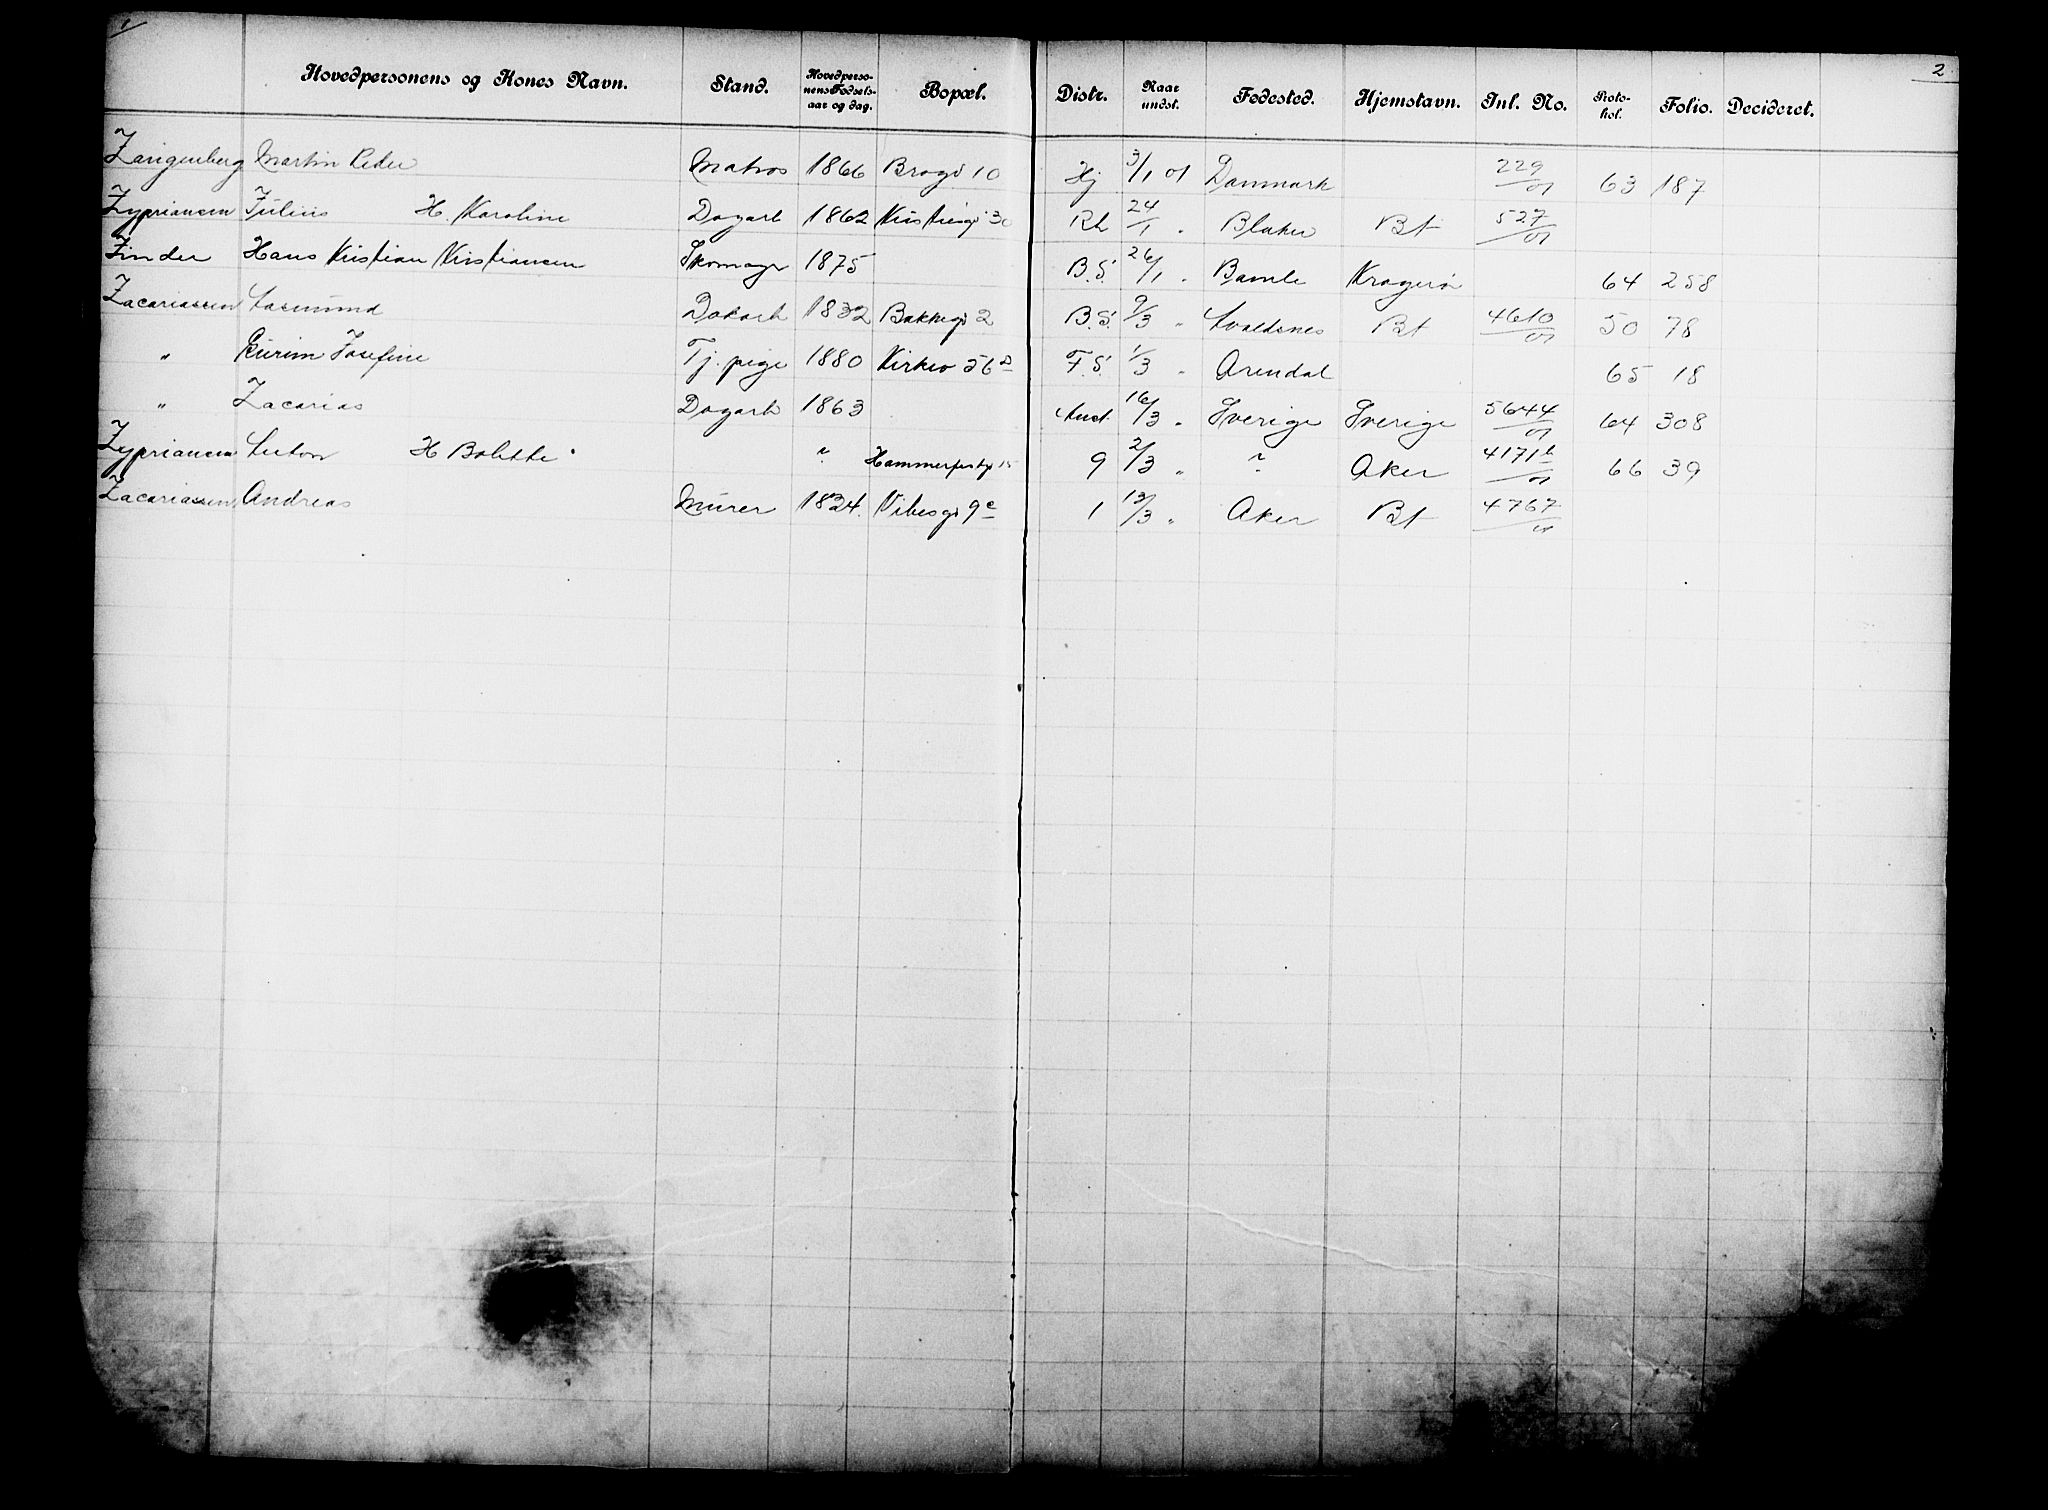 1
2
Hovedpersonens og Kones Navn. Stand. Hovedpersonens Fødselsaar og dag. Bopæl. Distr. Naar undst. Fødested. Hjemstavn. Inl. No. Protokol. Folio. Decideret.
Zangenberg Martin Peder Matros 1866 Brogd 10 Hj 3/1 01 Danmark 229/01 63 187
Zypriansen Julius H. Karoline Dagarb 1862 30 Rh 24/1 " Blaker Bt 527/01
Zinder Hans Kristian Kristiansen Skomager 1875 B.S. 26/1 " Bamle Kragerø 64 258
Zacariassen Aasmund Dokarb 1832 Bakkegd 2 B.S. 9/3 " Avaldsnes Bt 4610/01 50 78
" Josefine Tj. pige 1880 Kirkev 56 F.S. 1/3 " Arendal 65 18
" Zacarias Dagarb 1863 16/3 " Sverige Sverige 5644/01 64 308
Zypriansen Anton H Bolette " Hammerfestgt 15 9 2/3 " ? Aker 4171b/01 66 39
Zacariassen Andreas Murer 1824. Vibesgd 9c 1 13/3 " Aker Bt 4767/01